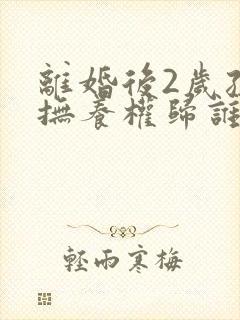 離婚後2歲孩
撫養權歸誰
輕雨寒梅